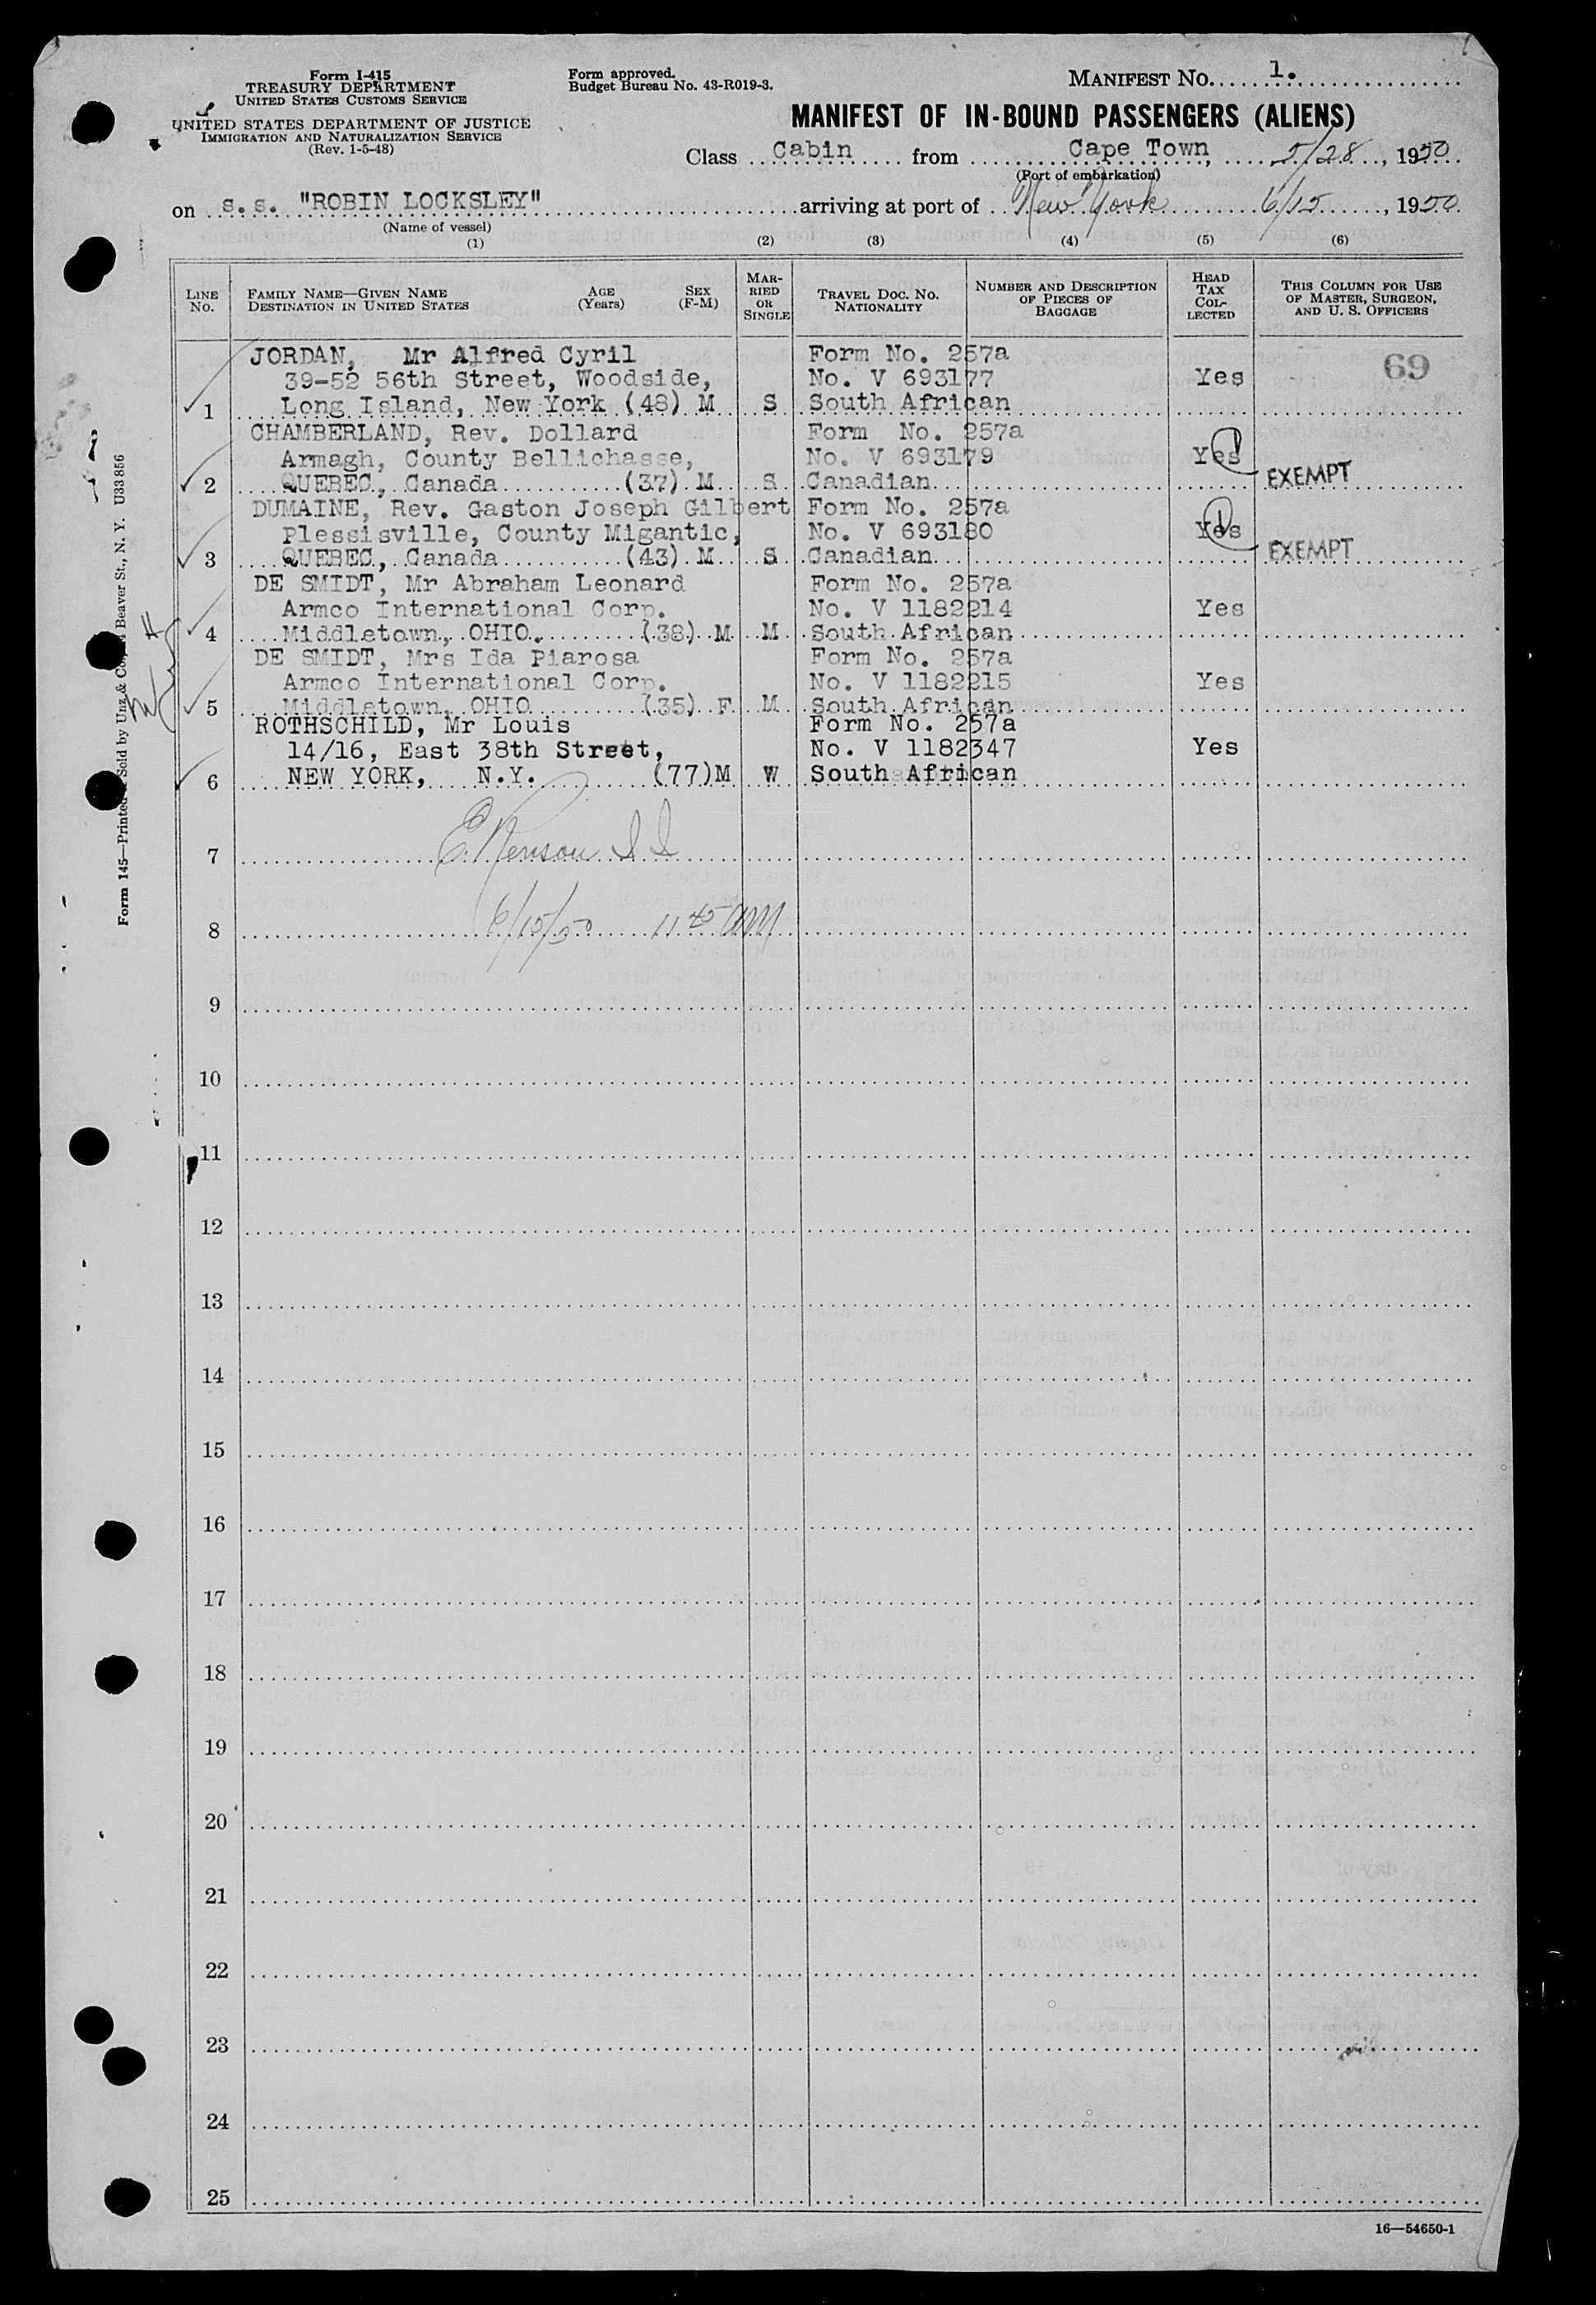 Form I-415
TREASURY DEPARTMENT
UNITED STATES CUSTOMS SERVICE
UNITED STATES DEPARTMENT OF JUSTICE
IMMIGRATION AND NATURALIZATION SERVICE
(Rev. 1-5-48)
Form approved.
Budget Bureau No. 43-R019-3.
MANIFEST NO. 1.
MANIFEST OF IN-BOUND PASSENGERS (ALIENS)
Class Cabin from Cape Town, 5/28, 1950
(Port of embarkation)
on s.s. "ROBIN LOCKSLEY" arriving at port of New York 6/15, 1950
(Name of vessel)
(1) (2) (3) (4) (5) (6)
LINE NO.
FAMILY NAME—GIVEN NAME AGE (Years) SEX (F-M)
DESTINATION IN UNITED STATES
MARRIED OR SINGLE
TRAVEL DOC. NO. NATIONALITY
NUMBER AND DESCRIPTION OF PIECES OF BAGGAGE
HEAD TAX COLLECTED
THIS COLUMN FOR USE OF MASTER, SURGEON, AND U. S. OFFICERS
JORDAN, Mr Alfred Cyril Form No. 257a 69
39-52 56th Street, Woodside, No. V 693177 Yes
1 Long Island, New York (48) M S South African
CHAMBERLAND, Rev. Dollard Form No. 257a
Armagh, County Bellichasse, No. V 693179 Yes
2 QUEBEC, Canada (37) M S Canadian EXEMPT
DUMAINE, Rev. Gaston Joseph Gilbert Form No. 257a
Plessisville, County Migantic, No. V 693180 Yes
3 QUEBEC, Canada (43) M S Canadian EXEMPT
DE SMIDT, Mr Abraham Leonard Form No. 257a
Armco International Corp. No. V 1182214 Yes
4 Middletown, OHIO. (38) M M South African
DE SMIDT, Mrs Ida Piarosa Form No. 257a
Armco International Corp. No. V 1182215 Yes
5 Middletown, OHIO (35) F M South African
ROTHSCHILD, Mr Louis Form No. 257a
14/16, East 38th Street, No. V 1182347 Yes
6 NEW YORK, N.Y. (77) M W South African
7
8 6/15/50 11 45 AM
9
10
11
12
13
14
15
16
17
18
19
20
21
22
23
24
25
16—54650-1
Form 145—Printed Sold by Unz & Co., Beaver St., N. Y. U33856